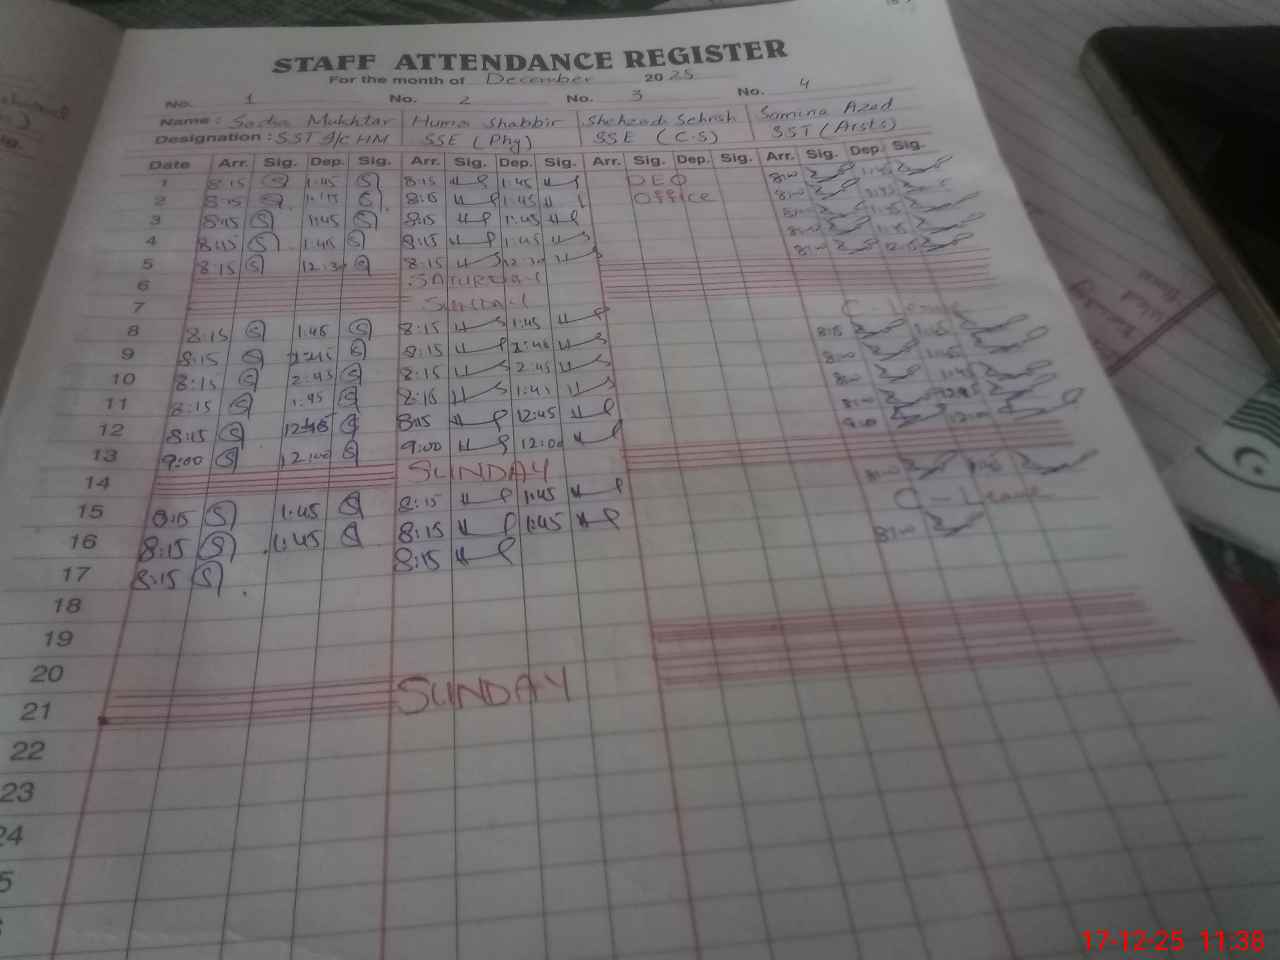 STAFF ATTENDANCE REGISTER
For the month of December 2025
No. 1 No. 2 No. 3 No. 4
Name: Sadia Mukhtar Huma Shabbir Shehzadi Sehrish Samina Azad
Designation: SST I/C HM SSE (Phy) SSE (C.S) SST (Arsts)
Date Arr. Sig. Dep. Sig. Arr. Sig. Dep. Sig. Arr. Sig. Dep. Sig. Arr. Sig. Dep. Sig.
1 8:15 S 1:45 S 8:15 1:45 DEO 8:00 1:45
2 8:15 S 1:45 S 8:15 1:45 Office 8:00 1:45
3 8:15 S 1:45 S 8:15 1:45 8:00 1:45
4 8:15 S 1:45 S 8:15 1:45 8:00 1:45
5 8:15 S 12:30 S 8:15 12:30 8:00 12:15
6 SATURDAY
7 SUNDAY
8 8:15 S 1:45 S 8:15 1:45 C-Leave
9 8:15 S S 8:15 8:15 1:45
10 8:15 S 2:45 S 8:15 2:45 8:00 1:45
11 8:15 S 1:45 S 8:15 1:45 8:00 1:45
12 8:15 S 12:45 S 8:15 12:45 8:00 12:45
13 9:00 S 12:00 S 9:00 12:00 9:00 12:00
14 SUNDAY
15 8:15 S 1:45 S 8:15 1:45 8:00 1:45
16 8:15 S 1:45 S 8:15 1:45 C-Leave
17 8:15 S 8:15 8:00
18
19
20
21 SUNDAY
22
23
24
5
17-12-25 11:38